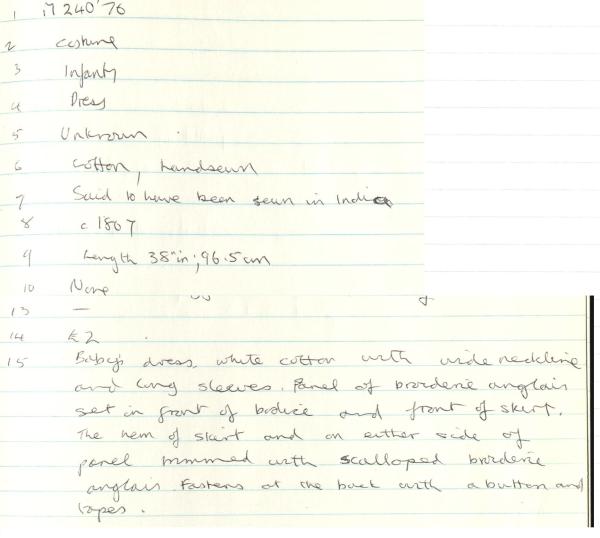 1 M 240'76
2 Costume
3 Infants
4 Dress
5 Unknown
6 Cotton, handsewn
7 Said to have been sewn in India
8 c 1867
9 Length 38"in; 96.5cm
10 None
13 —
14 £2
15 Baby's dress, white cotton with wide neckline
and long sleeves. Panel of broderie anglais
set in front of bodice and front of skirt.
The hem of skirt and on either side of
panel trimmed with scalloped broderie
anglais. Fastens at the back with a button and
tapes.